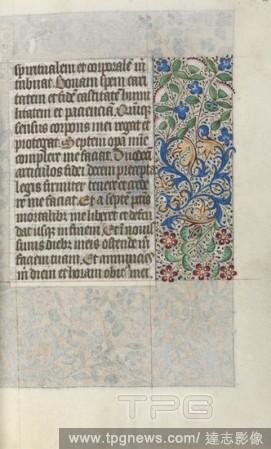 spiritualem et corporalē m
inhibitat. Bonam spem cari
tatem et fidē castitatē humi
litatem et pacienciā. Quīqz
sensus corporis mei regat et
protegat. Septem opa mīe
complere me faciat. Duodecī
articulos fidei decem precepta
legis firmiter tenere et crede
re me faciat. Et a septē pctīs
mortalibz me liberet et defen
dat usqz in finem. Et in novis
simis diebz meis ostende m
faciem tuam. Et annūcies m
in diem et horam obitꝰ mei.
TPG
www.tpgnews.com / 達志影像